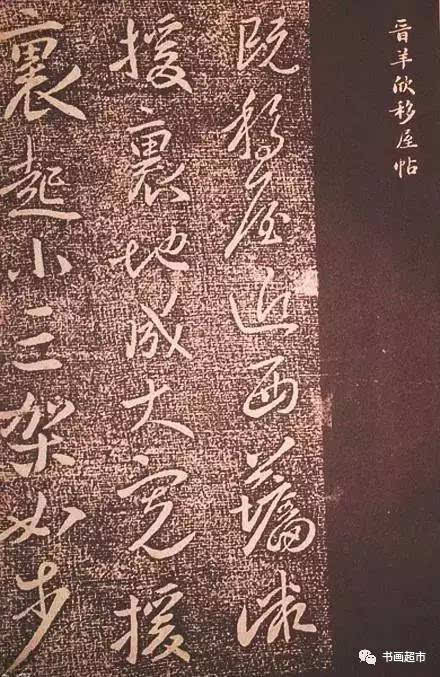 晋羊欣移屋帖
既移屋近西
援裏地成大寬援
裏起小三架如步
书画超市